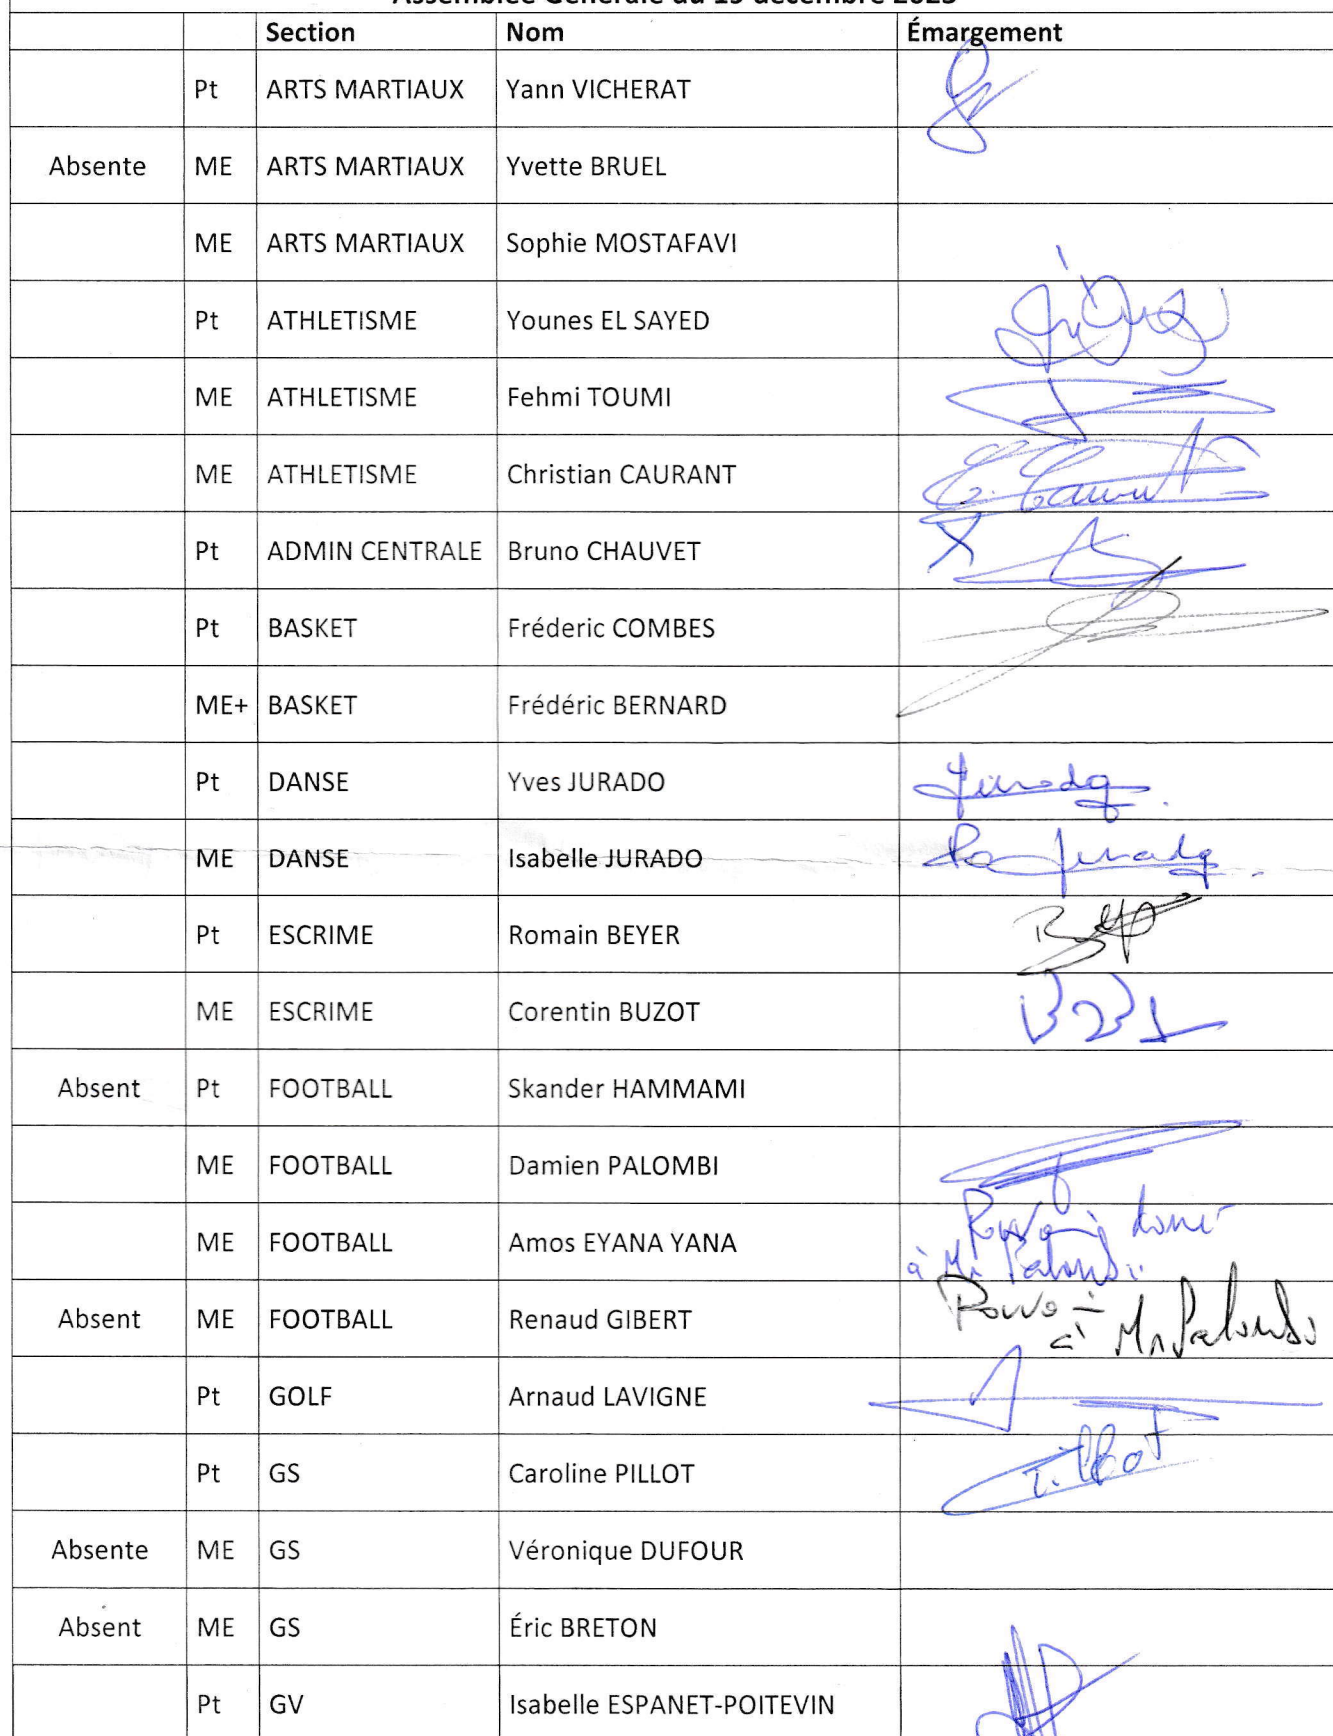 Assemblée Générale du 15 décembre 2023
Section Nom Émargement
Pt ARTS MARTIAUX Yann VICHERAT
Absente ME ARTS MARTIAUX Yvette BRUEL
ME ARTS MARTIAUX Sophie MOSTAFAVI
Pt ATHLETISME Younes EL SAYED
ME ATHLETISME Fehmi TOUMI
ME ATHLETISME Christian CAURANT
Pt ADMIN CENTRALE Bruno CHAUVET
Pt BASKET Fréderic COMBES
ME+ BASKET Frédéric BERNARD
Pt DANSE Yves JURADO Jurado
ME DANSE Isabelle JURADO Jurado
Pt ESCRIME Romain BEYER
ME ESCRIME Corentin BUZOT
Absent Pt FOOTBALL Skander HAMMAMI
ME FOOTBALL Damien PALOMBI
ME FOOTBALL Amos EYANA YANA Pouvoir donné
à Mr Palombi
Absent ME FOOTBALL Renaud GIBERT Pouvoir
à Mr Palombi
Pt GOLF Arnaud LAVIGNE
Pt GS Caroline PILLOT
Absente ME GS Véronique DUFOUR
Absent ME GS Éric BRETON
Pt GV Isabelle ESPANET-POITEVIN